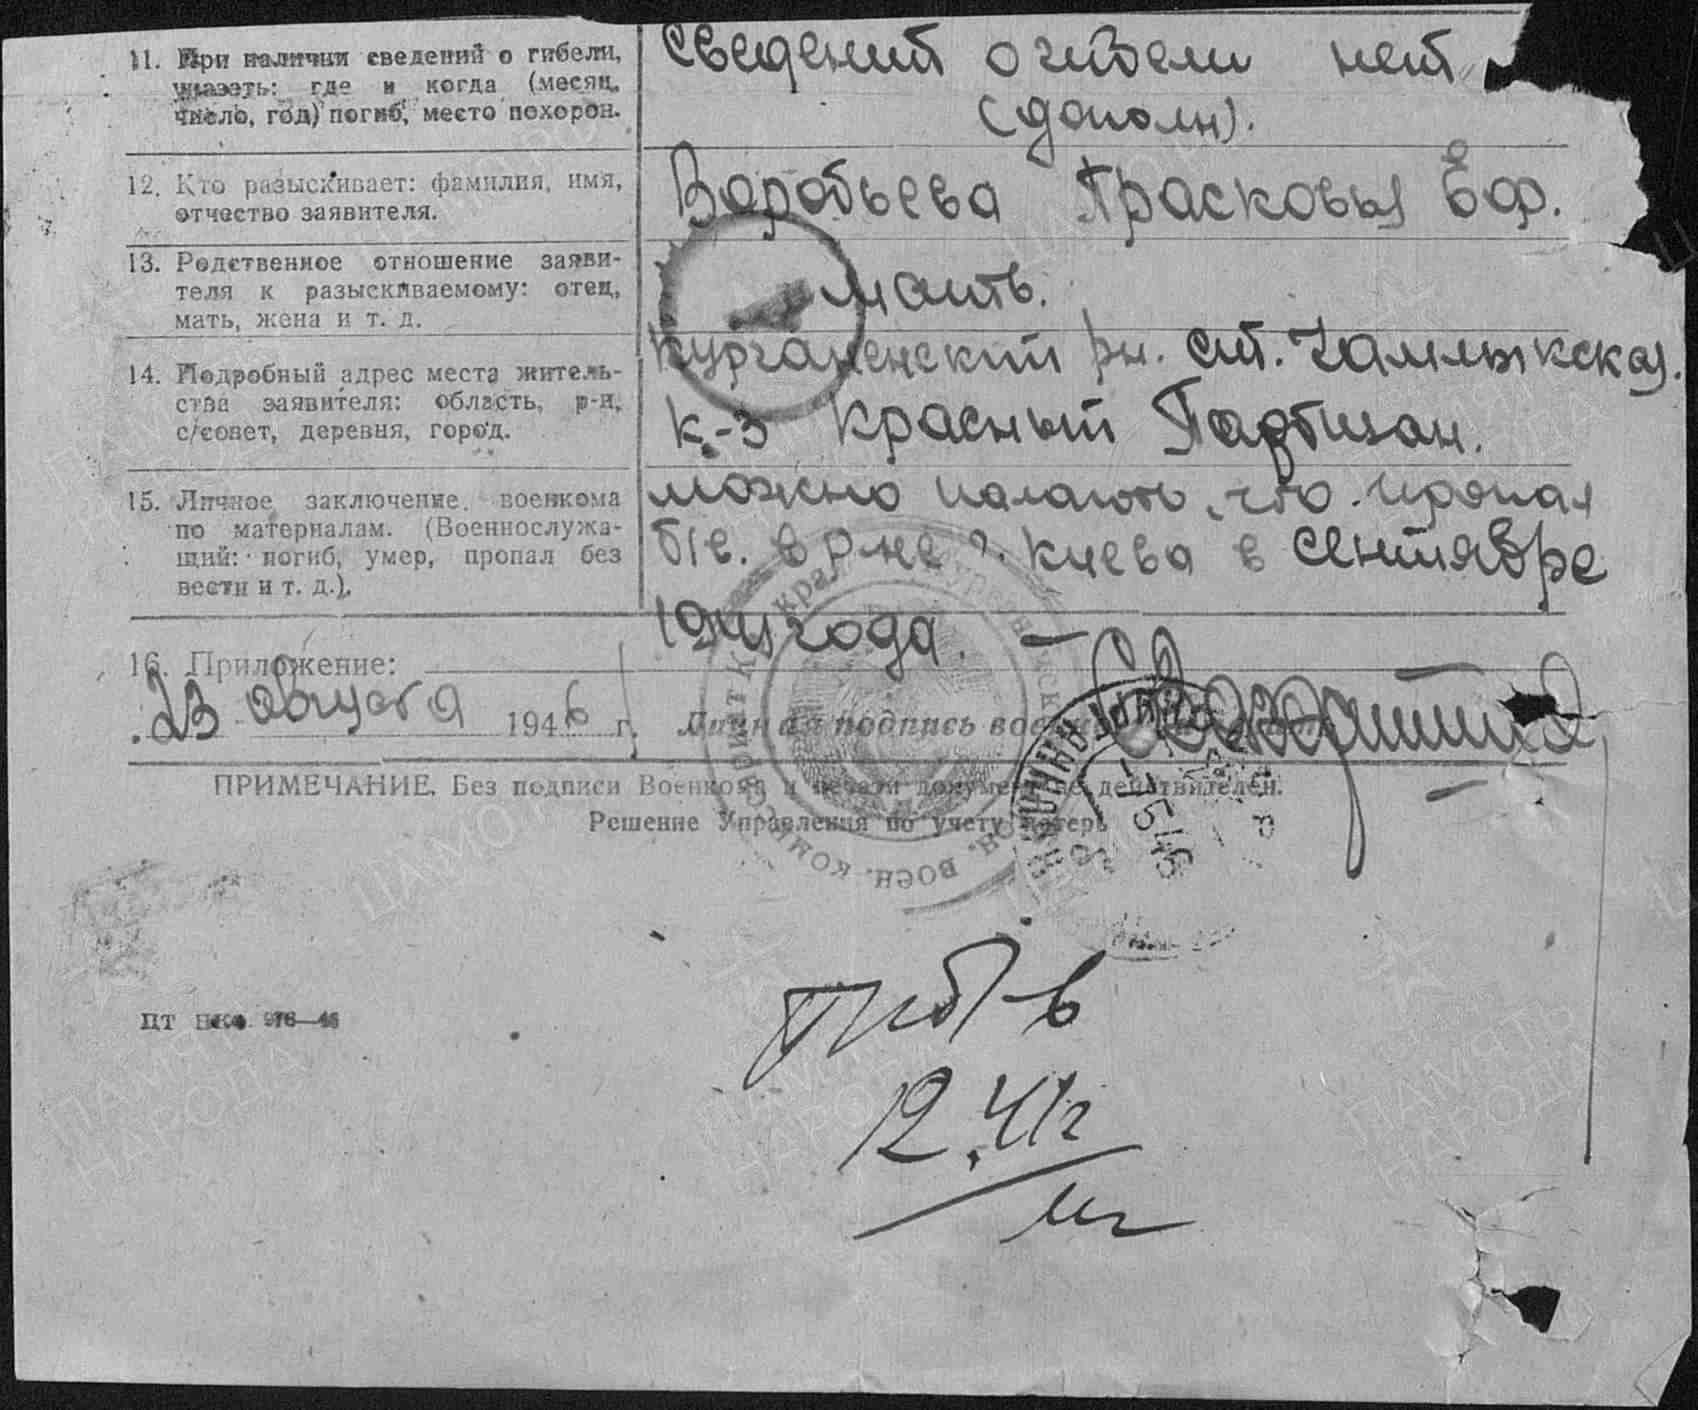 11. При наличии сведений о гибели,
указать: где и когда (месяц,
число, год) погиб, место похорон.
Сведений о гибели нет
(дополн).
12. Кто разыскивает: фамилия, имя,
отчество заявителя.
Воробьева Прасковья Еф.
13. Родственное отношение заяви-
теля к разыскиваемому: отец,
мать, жена и т. д.
мать.
14. Подробный адрес места житель-
ства заявителя: область, р-н,
с/совет, деревня, город.
Курганенский рн. ст. Чамлыкская.
к-з Красный Партизан.
15. Личное заключение военкома
по материалам. (Военнослужа-
щий: погиб, умер, пропал без
вести и т. д.).
можно полагать, что пропал
б/в. в р-не г. Киева в сентябре
1941 года.
16. Приложение:
23 августа 1946 г. Личная подпись
ПРИМЕЧАНИЕ. Без подписи Военкома и печати документ не действителен.
Решение Управления по учету потерь
воен. ком
5
ПТ НКО 976—46
12.41г
ПАМЯТЬ
НАРОДА
ЦАМО